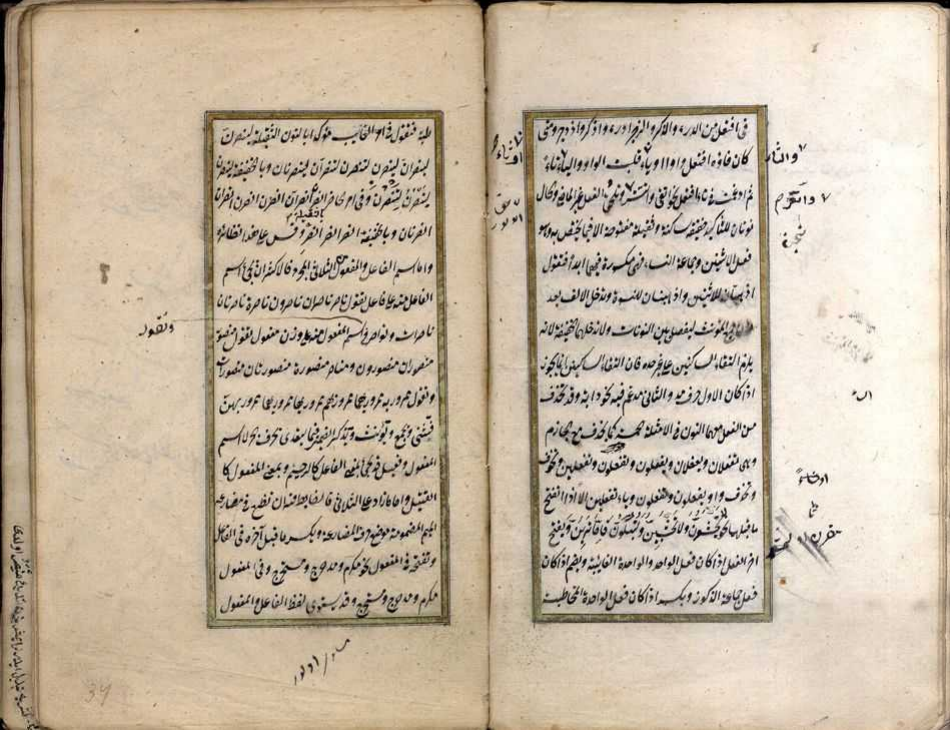 في افتعل من الدرء والذكر والزجر ادرء واذكر وازدجر ومتى
كان فاؤه افتعل واوا او ياء قلبت الواو والياء تاء
ثم ادغمت في تاء افتعل نحو اتقى واتسر ويلحق الفعل غير الماضي والحال
نونان للتأكيد خفيفة ساكنة وثقيلة مفتوحة الا فيما يختص به وهو
فعل الاثنين وجماعة النساء فهي مكسورة فيهما ابدا فتقول
اذهبان للاثنين واذهبنان للنسوة وتدخل الالف بعد
نون جمع المؤنث ليفصل بين النونات ولا تدخلهما الخفيفة لانه
يلزم التقاء الساكنين على غير حده فان التقاء الساكنين انما يجوز
اذا كان الاول حرف مد والثاني مدغم فيه نحو دابة وقد تحذف
من الفعل معهما النون في الامثلة الخمسة كما تحذف مع الجازم
وهي تفعلان ويفعلان ويفعلون وتفعلون وتفعلين وتحذف
وتحذف واو يفعلون وتفعلون وياء تفعلين الا اذا انفتح
ما قبلهما نحو لا تخشون ولا تخشين ولتبلون فاما ترين ويفتح
اخر الفعل اذا كان فعل الواحد والواحدة الغائبة ويضم اذا كان
فعل جماعة الذكور ويكسر اذا كان فعل الواحدة المخاطبة
طبة فتقول في امر الغائب مؤكدا بالنون الثقيلة لينصرن
لينصران لينصرن لتنصرن لتنصران لينصرنان وبالخفيفة لينصرن
لينصرن لتنصرن وفي امر الحاضر انصرن انصران انصرن انصرن انصران
انصرنان وبالخفيفة انصرن انصرن انصرن وقس على هذا نظائره
واما اسم الفاعل والمفعول من الثلاثي المجرد فالاكثر ان يجئ اسم
الفاعل منه على فاعل تقول ناصر ناصران ناصرون ناصرة ناصرتان
ناصرات ونواصر واسم المفعول منه على وزن مفعول تقول منصور
منصوران منصورون ومناصر منصورة منصورتان منصورات
وتقول ممرور به ممرور بهما ممرور بهم ممرور بها ممرور بهما ممرور بهن
فتثني وتجمع وتؤنث وتذكر الضمير فيما يتعدى بحرف الجر لا اسم
المفعول وفعيل قد يجئ بمعنى الفاعل كالرحيم وبمعنى المفعول كا
القتيل واما ما زاد على الثلاثي فالضابط فيه ان تضع في مضارعه
الميم المضمومة موضع حرف المضارعة وتكسر ما قبل آخره في الفاعل
وتفتحه في المفعول نحو مكرم ومدحرج ومستخرج وفي المفعول
مكرم ومدحرج ومستخرج وقد يستوي لفظ الفاعل والمفعول
وتقول